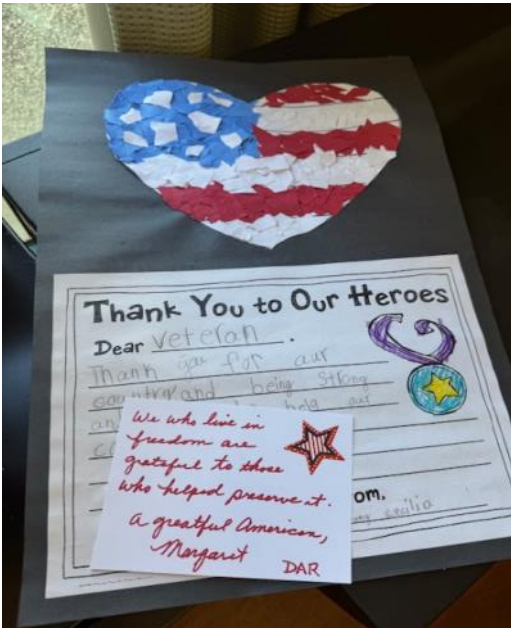 Thank You to Our Heroes
Dear Veteran.
Thank you for our
country and being strong
an help our
We who live in
freedom are
grateful to those
who helped preserve it.
a greatful American,
Margarit
DAR
om,
cecilia